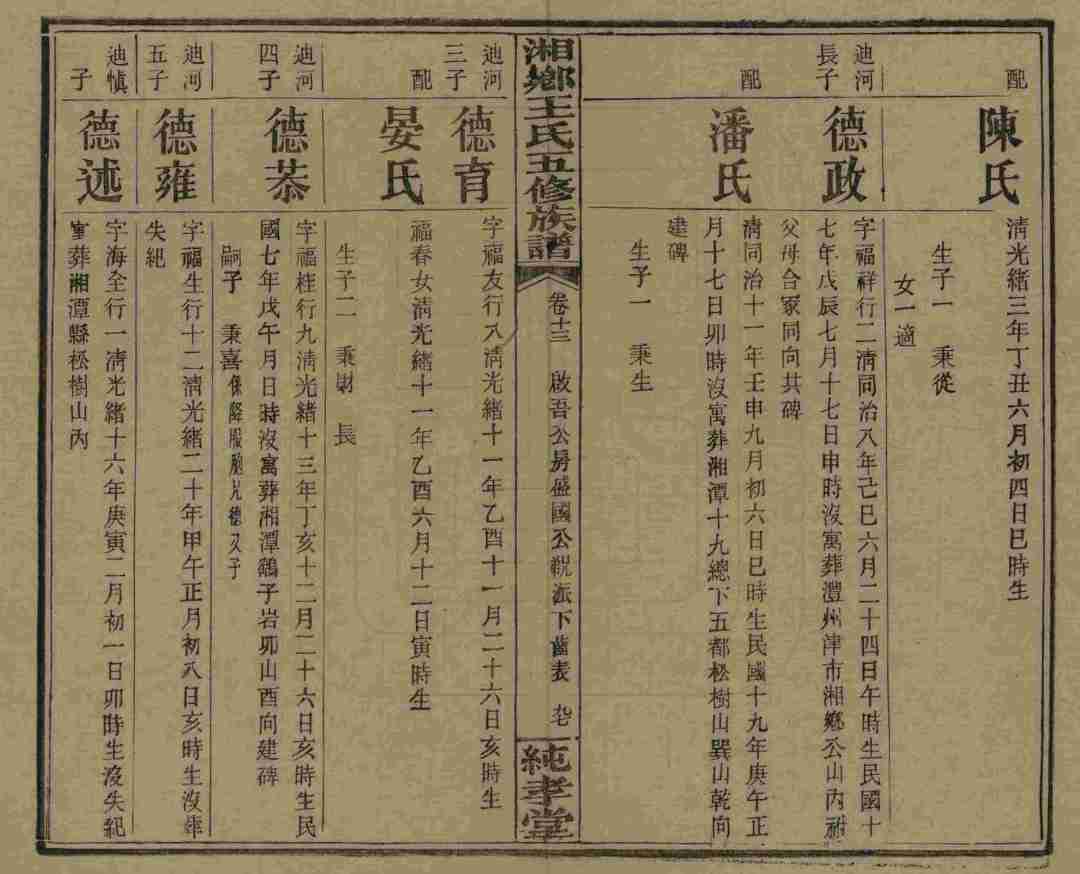 配
陳氏
淸光緒三年丁丑六月初四日巳時生
生子一 秉從
女一適
迪河
長子
德政
字福祥行二淸同治八年己巳六月二十四日午時生民國十
七年戊辰七月十七日申時沒寓葬澧州津市湘鄉公山內祔
父母合冢同向共碑
配
潘氏
淸同治十一年壬申九月初六日巳時生民國十九年庚午正
月十七日卯時沒寓葬湘潭十九總下五都松樹山巽山乾向
建碑
生子一 秉生
湘鄉王氏五修族譜
卷十三 啟吾公房盛國公派下齒表
純孝堂
迪河
三子
德育
字福友行八淸光緒十一年乙酉十一月二十六日亥時生
配
晏氏
福春女淸光緒十一年乙酉六月十二日寅時生
生子二 秉財 長
迪河
四子
德恭
字福桂行九淸光緒十三年丁亥十二月二十六日亥時生民
國七年戊午月日時沒寓葬湘潭鷂子岩卯山酉向建碑
嗣子 秉喜係降服胞兄德又子
迪河
五子
德雍
字福生行十二淸光緒二十年甲午正月初八日亥時生沒葬
失紀
迪愼
子
德述
字海全行一淸光緒十六年庚寅二月初一日卯時生沒失紀
寓葬湘潭縣松樹山內